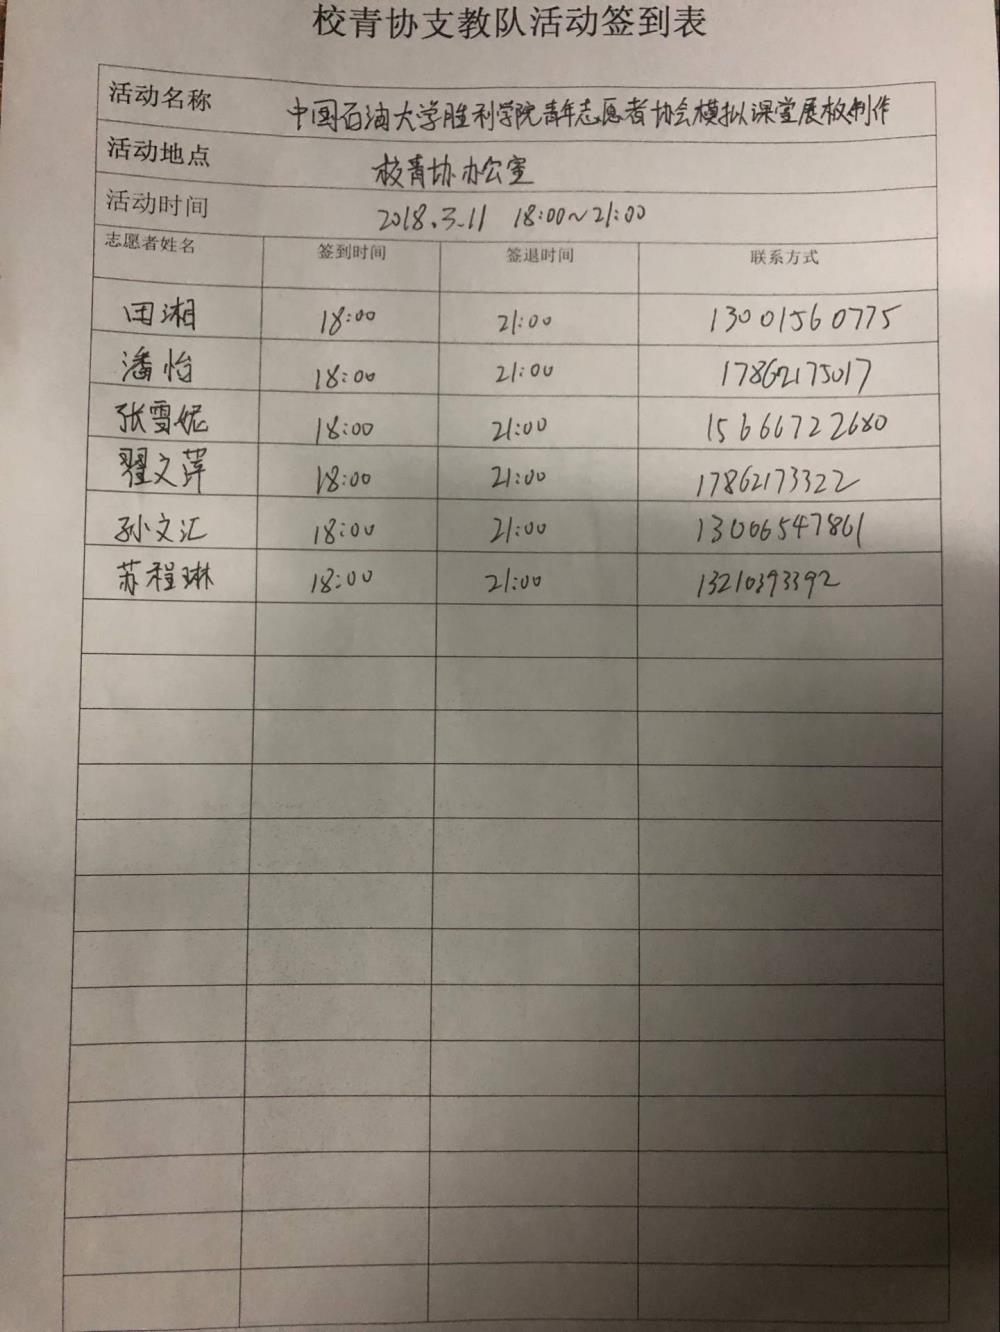 校青协支教队活动签到表
活动名称 中国石油大学胜利学院青年志愿者协会模拟课堂展板制作
活动地点 校青协办公室
活动时间 2018.3.11 18:00~21:00
志愿者姓名 签到时间 签退时间 联系方式
田湘 18:00 21:00 13001560775
潘怡 18:00 21:00 17862175017
张雪妮 18:00 21:00 15666722680
翟文萍 18:00 21:00 17862173322
孙文汇 18:00 21:00 13006547861
苏程琳 18:00 21:00 13210393392